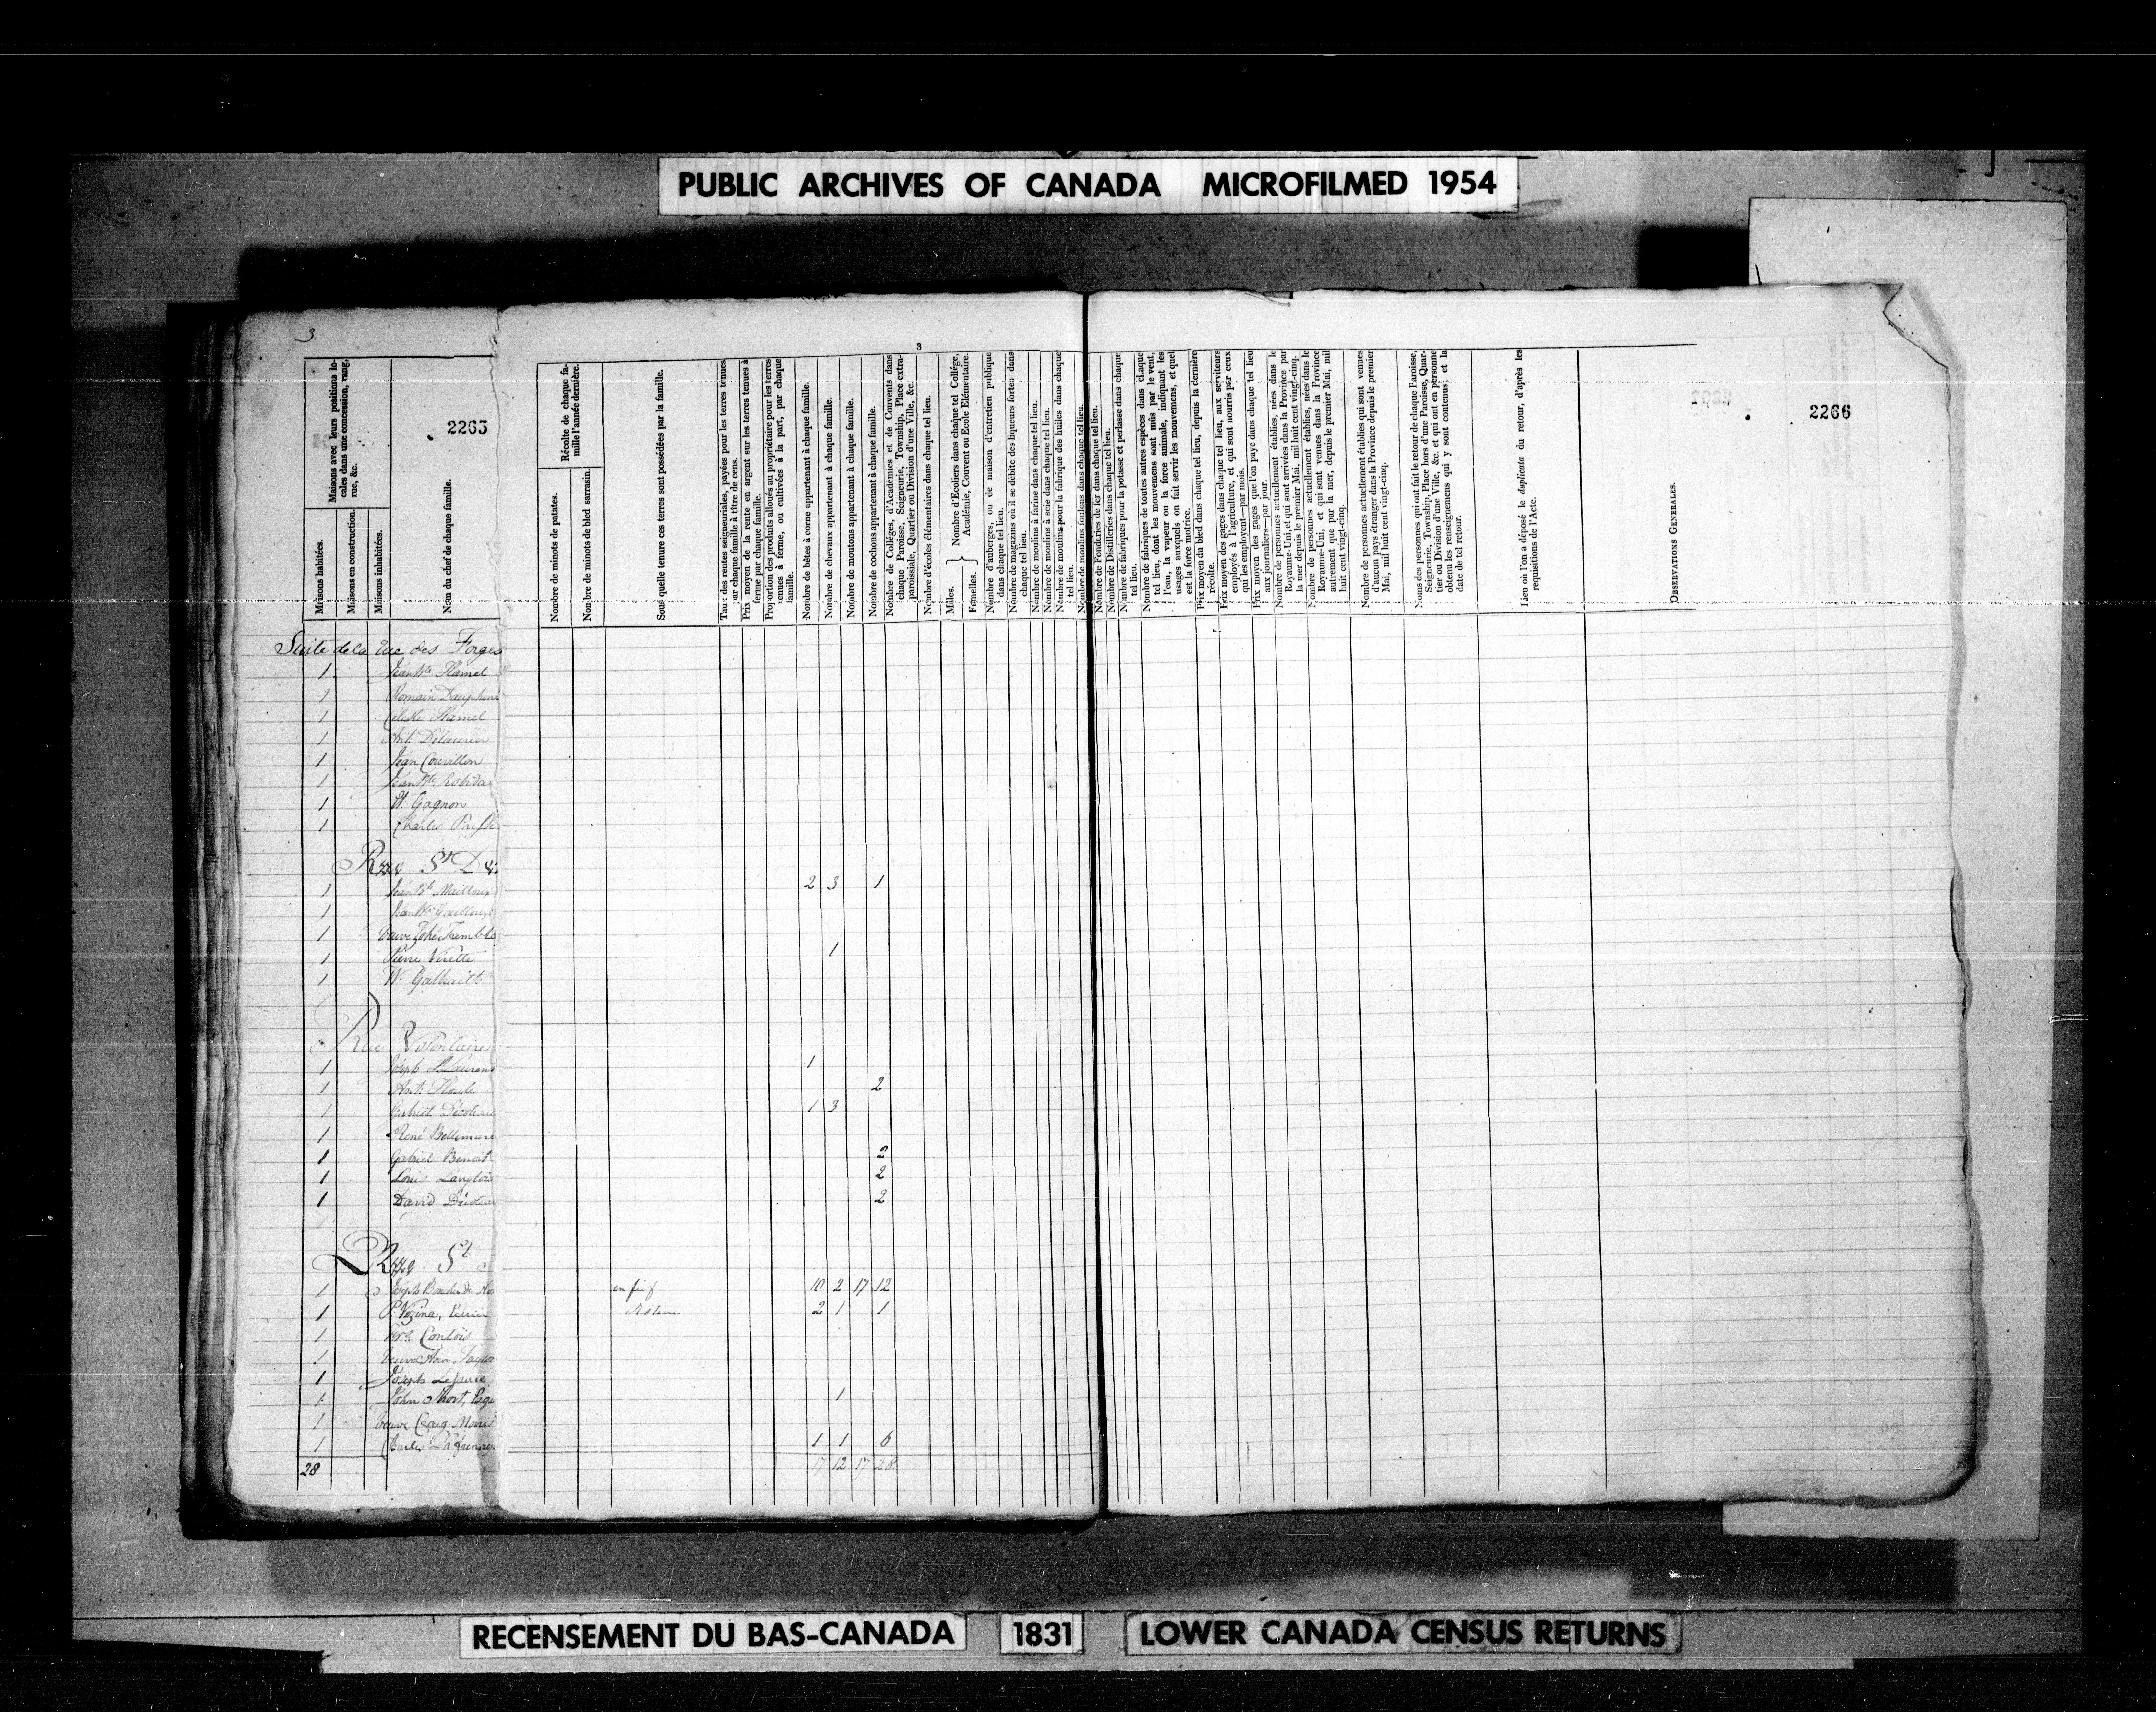 PUBLIC ARCHIVES OF CANADA MICROFILMED 1954
3
3
2265
2266
Maisons avec leurs positions lo-
cales dans une concession, rang,
rue, &c.
Maisons habitées.
Maisons en construction.
Maisons inhabitées.
Nom du chef de chaque famille.
Récolte de chaque fa-
mille l'année dernière.
Nombre de minots de patates.
Nombre de minots de bled sarrasin.
Sous quelle tenure ces terres sont possédées par la famille.
Taux des rentes seigneuriales, payées pour les terres tenues
par chaque famille à titre de cens.
Prix moyen de la rente en argent sur les terres tenues à
ferme par chaque famille.
Proportion des produits alloués au propriétaire pour les terres
tenues à ferme, ou cultivées à la part, par chaque
famille.
Nombre de bêtes à corne appartenant à chaque famille.
Nombre de chevaux appartenant à chaque famille.
Nombre de moutons appartenant à chaque famille.
Nombre de cochons appartenant à chaque famille.
Nombre de Colléges, d'Académies et de Couvents dans
chaque Paroisse, Seigneurie, Township, Place extra-
paroissiale, Quartier ou Division d'une Ville, &c.
Nombre d'écoles élémentaires dans chaque tel lieu.
Mâles.
Femelles.
Nombre d'Ecoliers dans chaque tel Collége,
Académie, Couvent ou Ecole Elémentaire.
Nombre d'auberges, ou de maison d'entretien publique
dans chaque tel lieu.
Nombre de magazins où il se débite des liqueurs fortes dans
chaque tel lieu.
Nombre de moulins à farine dans chaque tel lieu.
Nombre de moulins à scie dans chaque tel lieu.
Nombre de moulins pour la fabrique des huiles dans chaque
tel lieu.
Nombre de moulins foulons dans chaque tel lieu.
Nombre de Fonderies de fer dans chaque tel lieu.
Nombre de Distilleries dans chaque tel lieu.
Nombre de fabriques pour la potasse et perlasse dans chaque
tel lieu.
Nombre de fabriques de toutes autres espèces dans chaque
tel lieu, dont les mouvemens sont mûs par le vent,
l'eau, la vapeur ou la force animale, indiquant les
usages auxquels on fait servir les mouvemens, et quel
est la force motrice.
Prix moyen du bled dans chaque tel lieu, depuis la dernière
récolte.
Prix moyen des gages dans chaque tel lieu, aux serviteurs
employés à l'agriculture, et qui sont nourris par ceux
qui les employent—par mois.
Prix moyen des gages que l'on paye dans chaque tel lieu
aux journaliers—par jour.
Nombre de personnes actuellement établies, nées dans le
Royaume-Uni, et qui sont arrivées dans la Province par
la mer depuis le premier Mai, mil huit cent vingt-cinq.
Nombre de personnes actuellement établies, nées dans le
Royaume-Uni, et qui sont venues dans la Province
autrement que par la mer, depuis le premier Mai, mil
huit cent vingt-cinq.
Nombre de personnes actuellement établies qui sont venues
d'aucun pays étranger dans la Province depuis le premier
Mai, mil huit cent vingt-cinq.
Noms des personnes qui ont fait le retour de chaque Paroisse,
Seigneurie, Township, Place hors d'une Paroisse, Quar-
tier ou Division d'une Ville, &c. et qui ont en personne
obtenu les renseignemens qui y sont contenus; et la
date de tel retour.
Lieu où l'on a déposé le duplicata du retour, d'après les
requisitions de l'Acte.
OBSERVATIONS GENERALES.
Suite de la Rue des Forges
1 Jean Bte Hamel
1 Romain Dauphine
1 Hamel
1 Ant:
1 Jean Couvillon
1 Jean Bte Robida
1 W. Gagnon
1 Charles
Rue St
1 Jean Bte Mailloux 2 3 1
1 Jean Bte
1 Veuve Tremble
1 Pierre Verette 1
1 W.
Rue Volontaire
1 Joseph St Laurent 1
1 Ant: Houle 2
1 Gabriel 1 3
1 René Bellemare
1 Gabriel Benoit 2
1 Louis Langlois 2
1 David 2
Rue St
1 Joseph Boucher de en fief 10 2 17 12
1 P. Vézina, 2 1 1
1 Frs Contois
1 Veuve Ann Taylor
1 Joseph
1 John Short, 1
1 Veuve Craig
1 Charles 1 1 6
28 17 12 17 28
RECENSEMENT DU BAS-CANADA 1831 LOWER CANADA CENSUS RETURNS